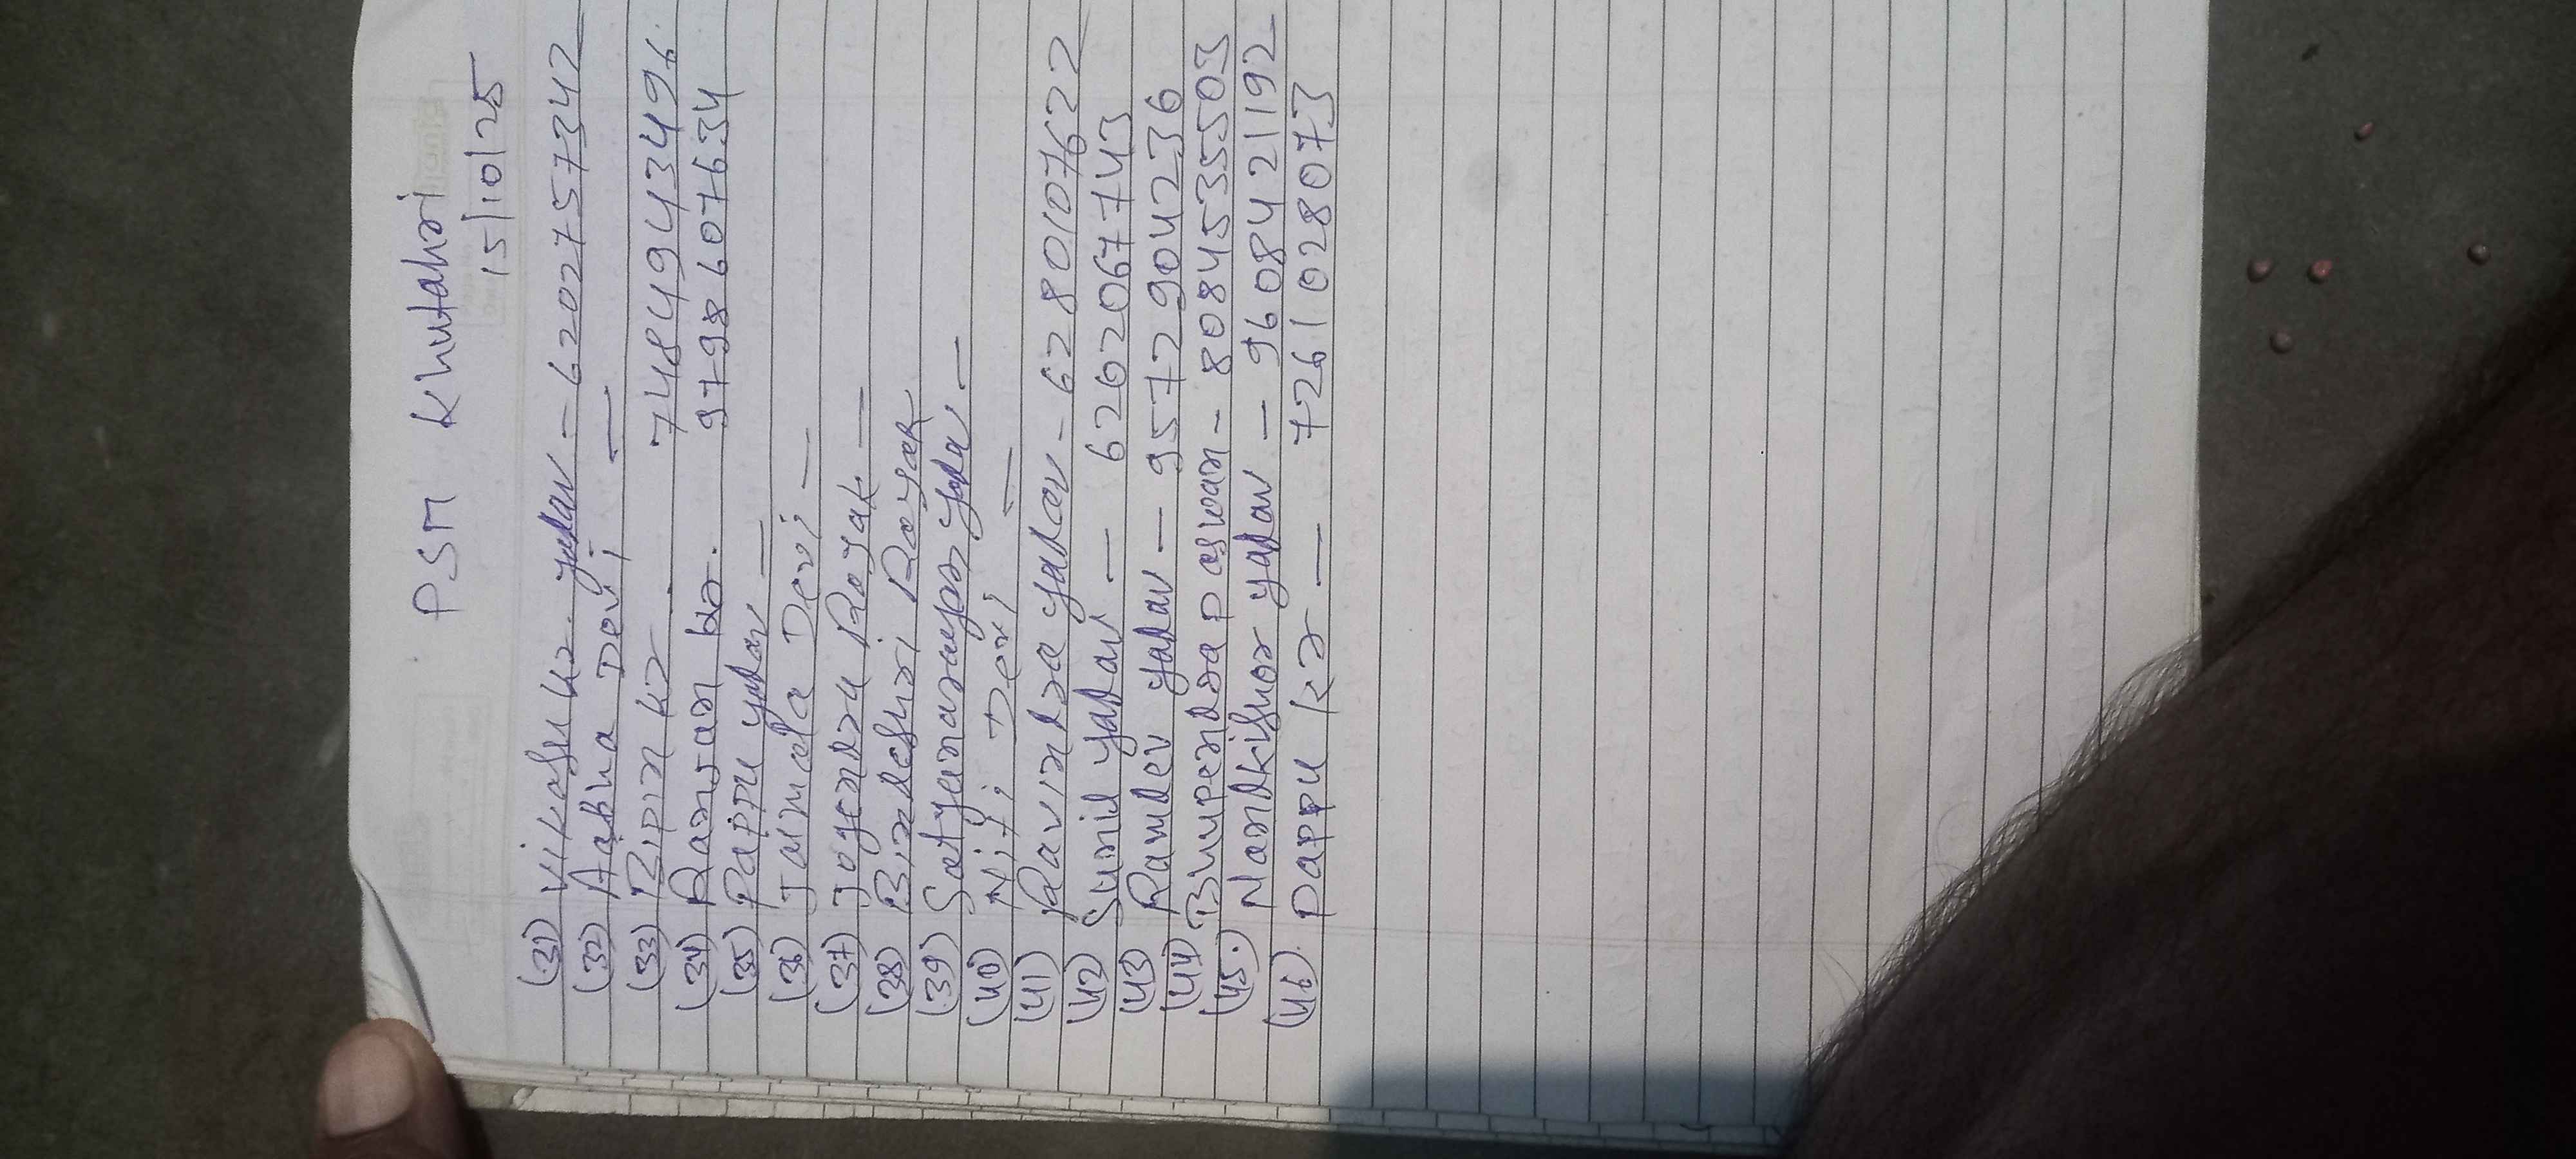 PSM Khutahri
15/10/25
(31) Vikash kr. yadav - 6202757342
(32) Aabha Devi —
(33) Bipin kr 7484943496
(34) Ranjan kr. 9798607634
(35) Pappu yadav —
(36) Jaimala Devi —
(37) Jogendra Rajak —
(38) Bindeshri Rajak
(39) Satyanarayan yadav —
(40) Niti Devi —
(41) Ravindra yadav - 6280107622
(42) Sunil yadav — 6262067743
(43) Ramdev yadav — 9572904236
(44) Bhupendra paswan - 8084535503
(45). Nandkishor yadav - 9608421192
(46). Pappu kr — 7261028073